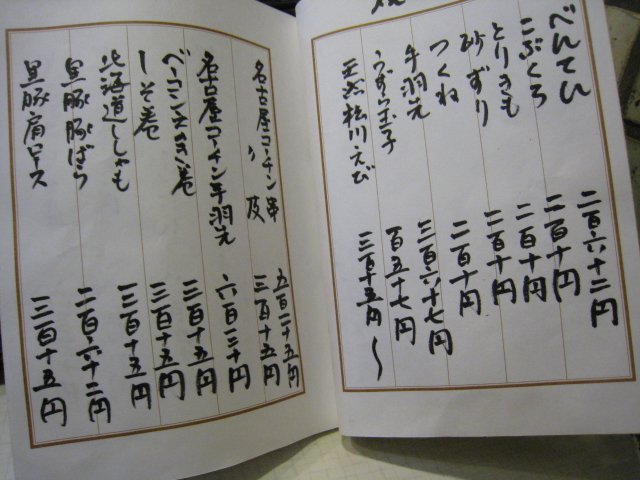 二百六十二円
こぶくろ 二百十円
とりきも 二百十円
砂ずり 二百十円
つくね 二百十円
手羽先 三百六十七円
うずら玉子 百五十七円
えび 三百十五円〜
名古屋コーチン串 五百二十五円
〃 皮 三百十五円
名古屋コーチン手羽先 六百三十円
ベーコンえのき巻 三百十五円
しそ巻 三百十五円
北海道ししゃも 三百十五円
黒豚豚ばら 二百六十二円
黒豚肩ロース 三百十五円